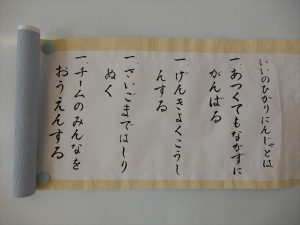 いいのひかりにんじゃとは
一、あつくてもなかずに
がんばる
一、げんきよくこうし
んする
一、さいごまではしり
ぬく
一、チームのみんなを
おうえんする